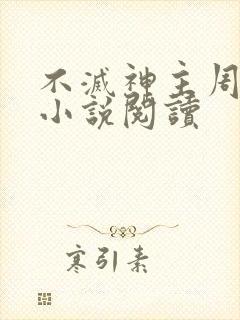 不滅神主周
小說閱讀
寒引素